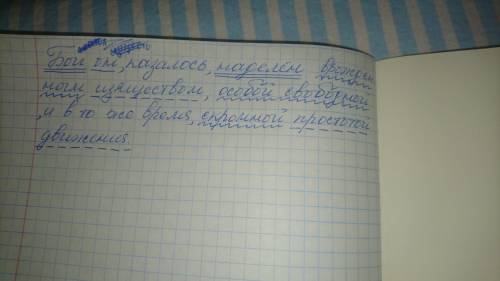 Был он, казалось, наделён врождён
ным изяществом, особой свободной
, и в то же время, скромной простотой
движения.